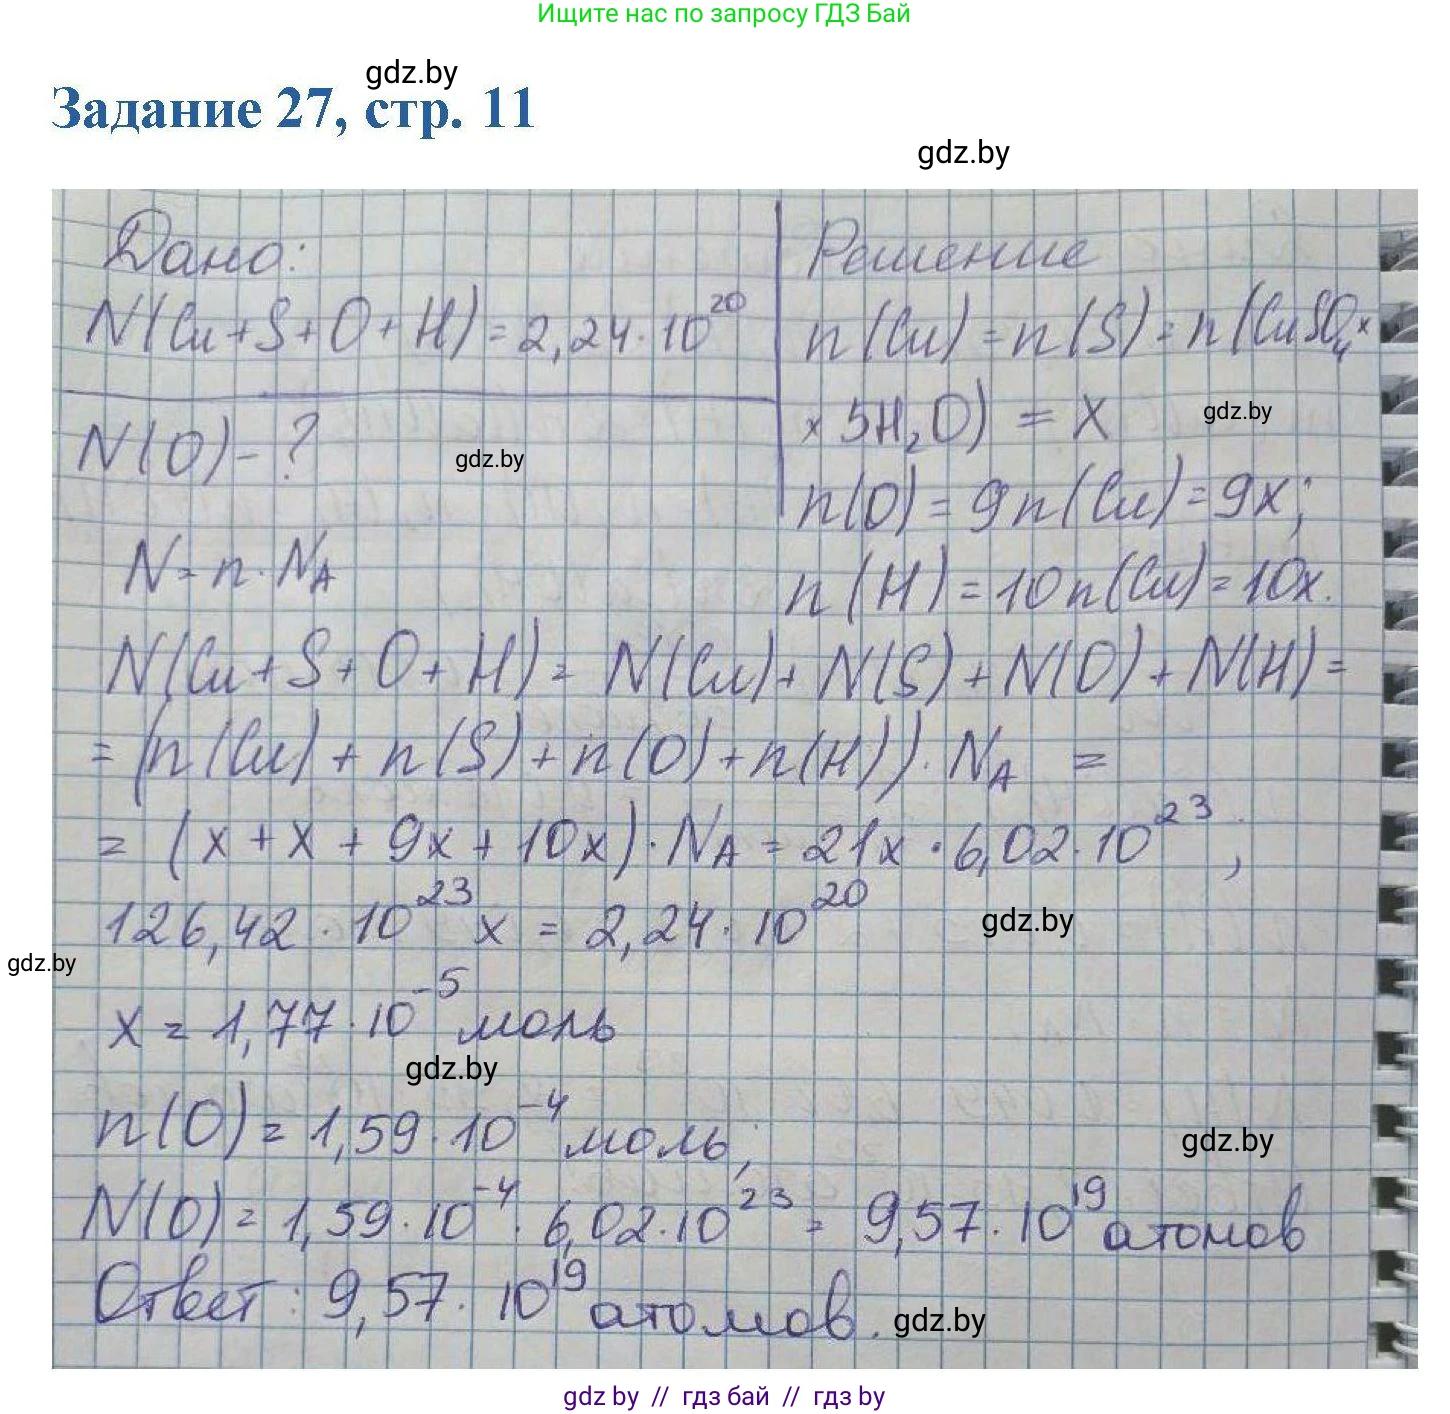 Ищите нас по запросу ГДЗ Бай
gdz.by
Задание 27, стр. 11
gdz.by
Дано:
N(Cu+S+O+H)=2,24·10²⁰
N(O)-?
gdz.by
N=n·N_A
Решение
n(Cu)=n(S)=n(CuSO₄×
×5H₂O)=x
gdz.by
n(O)=9n(Cu)=9x;
n(H)=10n(Cu)=10x.
N(Cu+S+O+H)=N(Cu)+N(S)+N(O)+N(H)=
=(n(Cu)+n(S)+n(O)+n(H))·N_A=
=(x+x+9x+10x)·N_A=21x·6,02·10²³;
126,42·10²³x=2,24·10²⁰
gdz.by
gdz.by
x=1,77·10⁻⁵ моль
gdz.by
n(O)=1,59·10⁻⁴ моль;
gdz.by
N(O)=1,59·10⁻⁴·6,02·10²³=9,57·10¹⁹ атомов
Ответ: 9,57·10¹⁹ атомов.
gdz.by
gdz by // гдз бай // гдз by